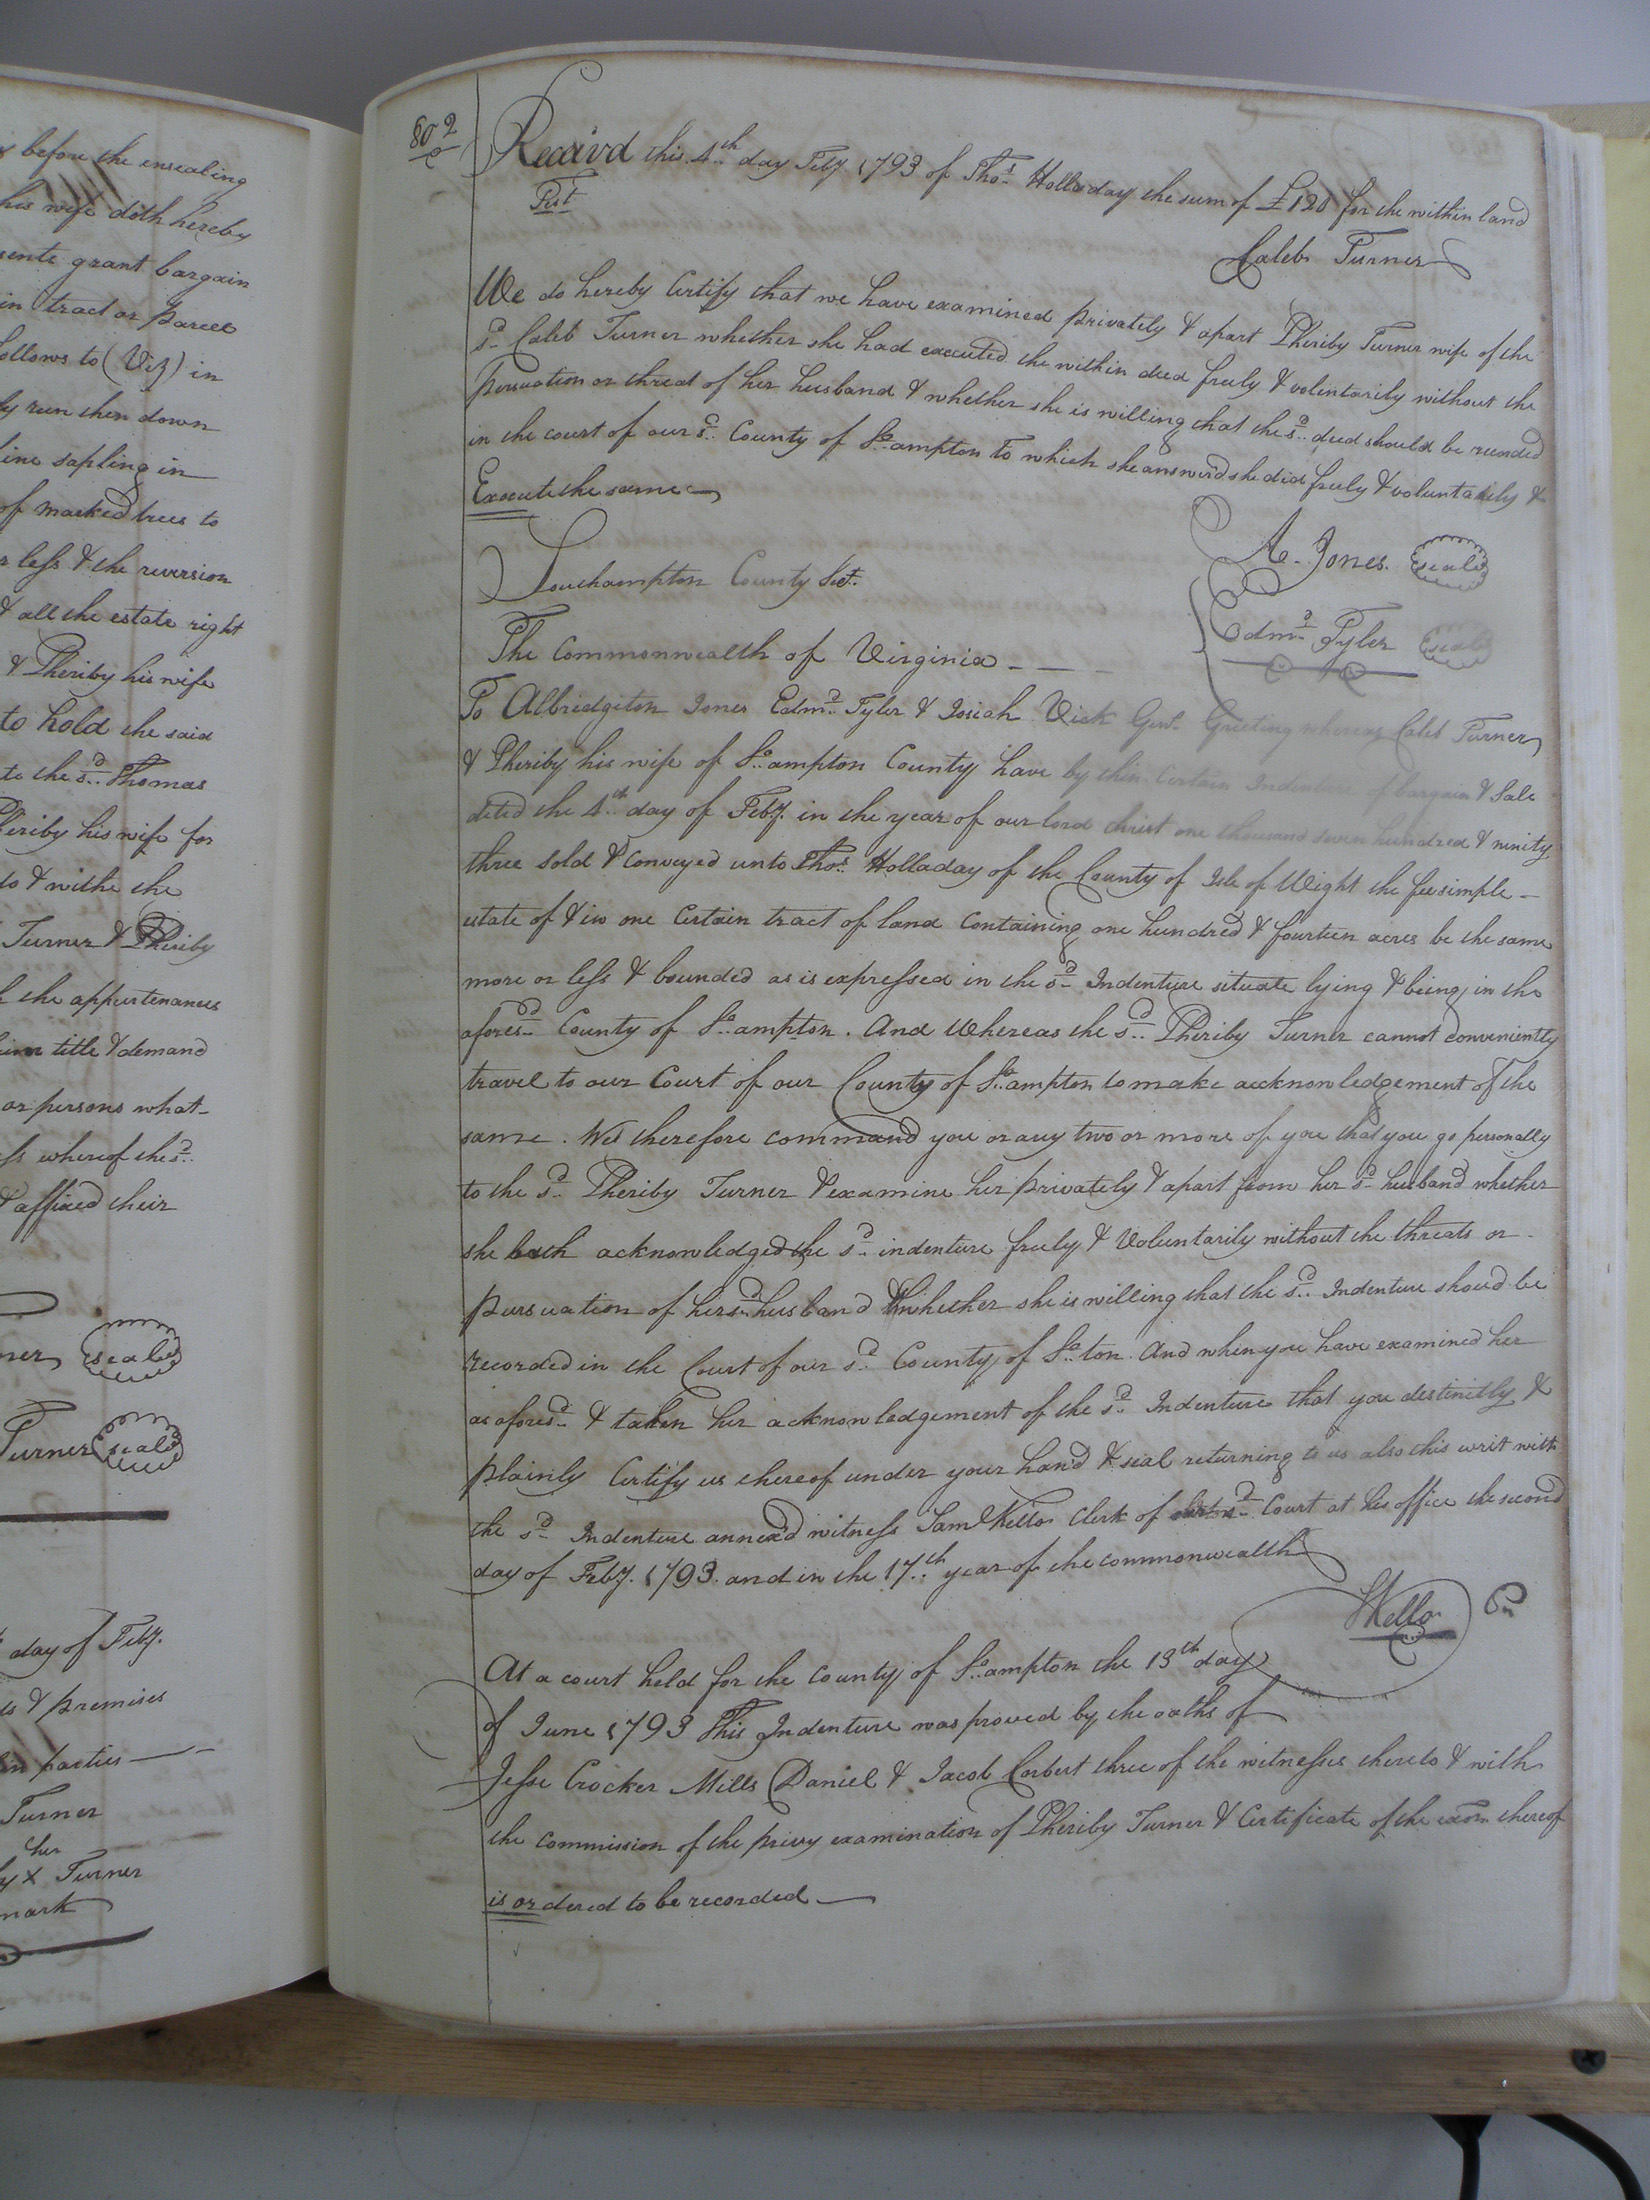 x before the ensealing
his wife doth hereby
sents grant bargain
in tract or parcel
follows to (Viz) in
ly run then down
ine sapling in
of marked trees to
r less & the reversion
& all the estate right
& Pheriby his wife
to hold the said
to the sd. Thomas
Pheriby his wife for
to & withe the
Turner & Pheriby
the appurtenances
title & demand
or persons what-
ss whereof the sd.
& affixed their
ner seal
Turner seal
day of Feby.
& premises
in parties
Turner
her
y X Turner
mark
802
Receivd this 4th day Feby. 1793 of Thos. Holladay the sum of £120 for the within land
Test
Caleb Turner
We do hereby Certify that we have examined privately & apart Pheriby Turner wife of the
sd. Caleb Turner whether she had executed the within deed freely & volentarily without the
persuation or threat of her husband & whether she is willing that the sd. deed should be recorded
in the court of our sd. County of So.ampton to which she answerd she did freely & voluntarily &
Execute the same
A. Jones. seal
Southampton County Sct.
Edmd. Tyler seal
The Commonwealth of Virginia
To Albridgiton Jones Edmd. Tyler & Josiah Vick Gent. Greeting whereas Caleb Turner
& Pheriby his wife of So.ampton County have by their Certain Indenture of bargain & Sale
dated the 4th day of Feby. in the year of our lord christ one thousand seven hundred & ninity
three sold & Conveyed unto Thos. Holladay of the County of Isle of Wight the fee simple
estate of & in one Certain tract of land Containing one hundred & fourteen acres be the same
more or less & bounded as is expressed in the sd. Indenture situate lying & being in the
aforesd. County of So.ampton. And Whereas the sd. Pheriby Turner cannot conveniently
travel to our Court of our County of So.ampton to make acknowledgement of the
same. We therefore command you or any two or more of you that you go personally
to the sd. Pheriby Turner & examine her privately & apart from her sd. husband whether
she hath acknowledged the sd. indenture freely & Voluntarily without the threats or
pursuation of her sd. husband & whether she is willing that the sd. Indenture should be
recorded in the Court of our sd. County of So.ton. And when you have examined her
as aforesd. & taken her acknowledgement of the sd. Indenture that you destinitly &
plainly Certify us thereof under your hand & seal returning to us also this writ with
the sd. Indenture annexd witness Saml Kello Clerk of sd. Court at his office the second
day of Feby. 1793. and in the 17th. year of the commonwealth
SKello
At a court held for the County of So.ampton the 13th day
of June 1793 This Indenture was proved by the oaths of
Jesse Crocker Mills Daniel & Jacob Corbert three of the witnesses thereto & with
the commission of the privy examination of Pheriby Turner & Certificate of the exon thereof
is ordered to be recorded